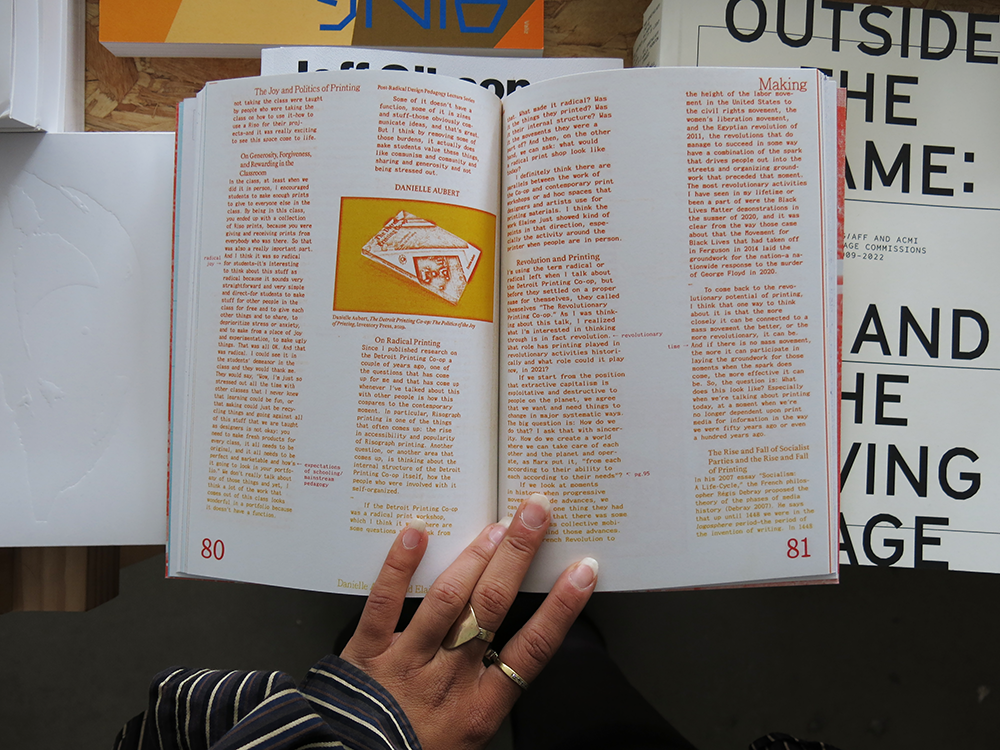 The Joy and Politics of Printing
Post-Radical Design Pedagogy Lecture Series
not taking the class were taught
by people who were taking the
class on how to use it—how to
use a Riso for their proj-
ects—and it was really exciting
to see this sauce come to life.
On Generosity, Forgiveness,
and Rewarding in the
Classroom
In the class, at least when we
did it in person, I encouraged
students to make enough prints
to give to everyone else in the
class. By being in this class,
you ended up with a collection
of Riso prints, because you were
giving and receiving prints from
everybody who was there. So that
was also a really important part.
radical
joy
And I think it was so radical
for students—it's interesting
to think about this stuff as
radical because it sounds very
straightforward and very simple
and direct—for students to make
stuff for other people in the
class for free and to give each
other things and to share, to
deprioritise stress or anxiety,
and to make free a place of joy
and experimentation, to make ugly
things. That was all OK. And that
was radical. I could see it in
the students' demeanor in the
class and they would thank me.
They would say, "Wow, I'm just so
stressed out all the time with
other classes that I never knew
that learning could be fun, or
that making could just be recy-
cling things and going against all
of this stuff that we are taught
as designers is not okay: you
need to make fresh products for
every class, it all needs to be
original, and it all needs to be
perfect and marketable and how's
it going to look in your portfo-
lio." We don't really talk about
any of those things and yet, I
think a lot of the work that
comes out of this class looks
wonderful in a portfolio because
it doesn't have a function.
expectations
of schooling/
mainstream
pedagogy
Some of it doesn't have a
function, some of it is zines
and stuff—those obviously com-
municate ideas, and that's great.
But I think by removing some of
those burdens, it actually does
make students value these things,
like communism and community and
sharing and generosity and not
being stressed out.
DANIELLE AUBERT
Danielle Aubert, The Detroit Printing Co-op: The Politics of the Joy
of Printing, Inventory Press, 2019.
On Radical Printing
Since I published research on
the Detroit Printing Co-op a
couple of years ago, one of
the questions that has come
up for me and that has come up
whenever I've talked about this
with other people is how this
compares to the contemporary
moment. In particular, Risograph
printing is one of the things
that often comes up: the rise
in accessibility and popularity
of Risograph printing. Another
question, or another area that
comes up, is thinking about the
internal structure of the Detroit
Printing Co-op itself, how the
people who were involved with it
self-organized.
If the Detroit Printing Co-op
was a radical print workshop,
which I think it
80
Danielle
Making
What made it radical? Was
things they printed? Was
their internal structure? Was
movements they were a
of? And then, on the other
hand, we can ask: what would
a radical print shop look like
today?
I definitely think there are
parallels between the work of
the Co-op and contemporary print
workshops or ad hoc spaces that
designers and artists use for
printing materials. I think the
work Elaine just showed kind of
points in that direction, espe-
cially the activity around the
printer when people are in person.
Revolution and Printing
I'm using the term radical or
radical left when I talk about
the Detroit Printing Co-op, but
before they settled on a proper
name for themselves, they called
themselves "The Revolutionary
Printing Co-op." As I was think-
ing about this talk, I realized
what I'm interested in thinking
through is in fact revolution.
What role has printing played in
revolutionary activities histori-
cally and what role could it play
now, in 2021?
revolutionary
time
If we start from the position
that extractive capitalism is
exploitative and destructive to
people on the planet, we agree
that we want and need things to
change in major systematic ways.
The big question is: How do we
do that? I ask that with sincer-
ity. How do we create a world
where we can take care of each
other and the planet and oper-
ate, as Marx put it, "from each
according to their ability to
each according to their needs"?
pg.95
If we look at moments
in history when progressive
advances, we
one thing they had
that there was some
collective mobi-
those advances.
French Revolution to
the height of the labor move-
ment in the United States to
the civil rights movement, the
women's liberation movement,
and the Egyptian revolution of
2011, the revolutions that do
manage to succeed in some way
have a combination of the spark
that drives people out into the
streets and organizing ground-
work that preceded that moment.
The most revolutionary activities
I have seen in my lifetime or
been a part of were the Black
Lives Matter demonstrations in
the summer of 2020, and it was
clear from the way those came
about that the Movement for
Black Lives that had taken off
in Ferguson in 2014 laid the
groundwork for the nation—a na-
tionwide response to the murder
of George Floyd in 2020.
To come back to the revo-
lutionary potential of printing,
I think that one way to think
about it is that the more
closely it can be connected to a
mass movement the better, or the
more revolutionary, it can be.
And if there is no mass movement,
the more it can participate in
laying the groundwork for those
moments when the spark does
come, the more effective it can
be. So, the question is: What
does this look like? Especially
when we're talking about printing
today, at a moment when we're
no longer dependent upon print
media for information in the way
we were fifty years ago or even
a hundred years ago.
The Rise and Fall of Socialist
Parties and the Rise and Fall
of Printing
In his 2007 essay "Socialism:
A Life-Cycle," the French philos-
opher Régis Debray proposed the
theory of the phases of media
history (Debray 2007). He says
that up until 1448 we were in the
logosphere period—the period of
the invention of writing. In 1448
81
OUTSIDE
THE
AME:
AFF AND ACMI
AGE COMMISSIONS
09-2022
AND
HE
VING
AGE